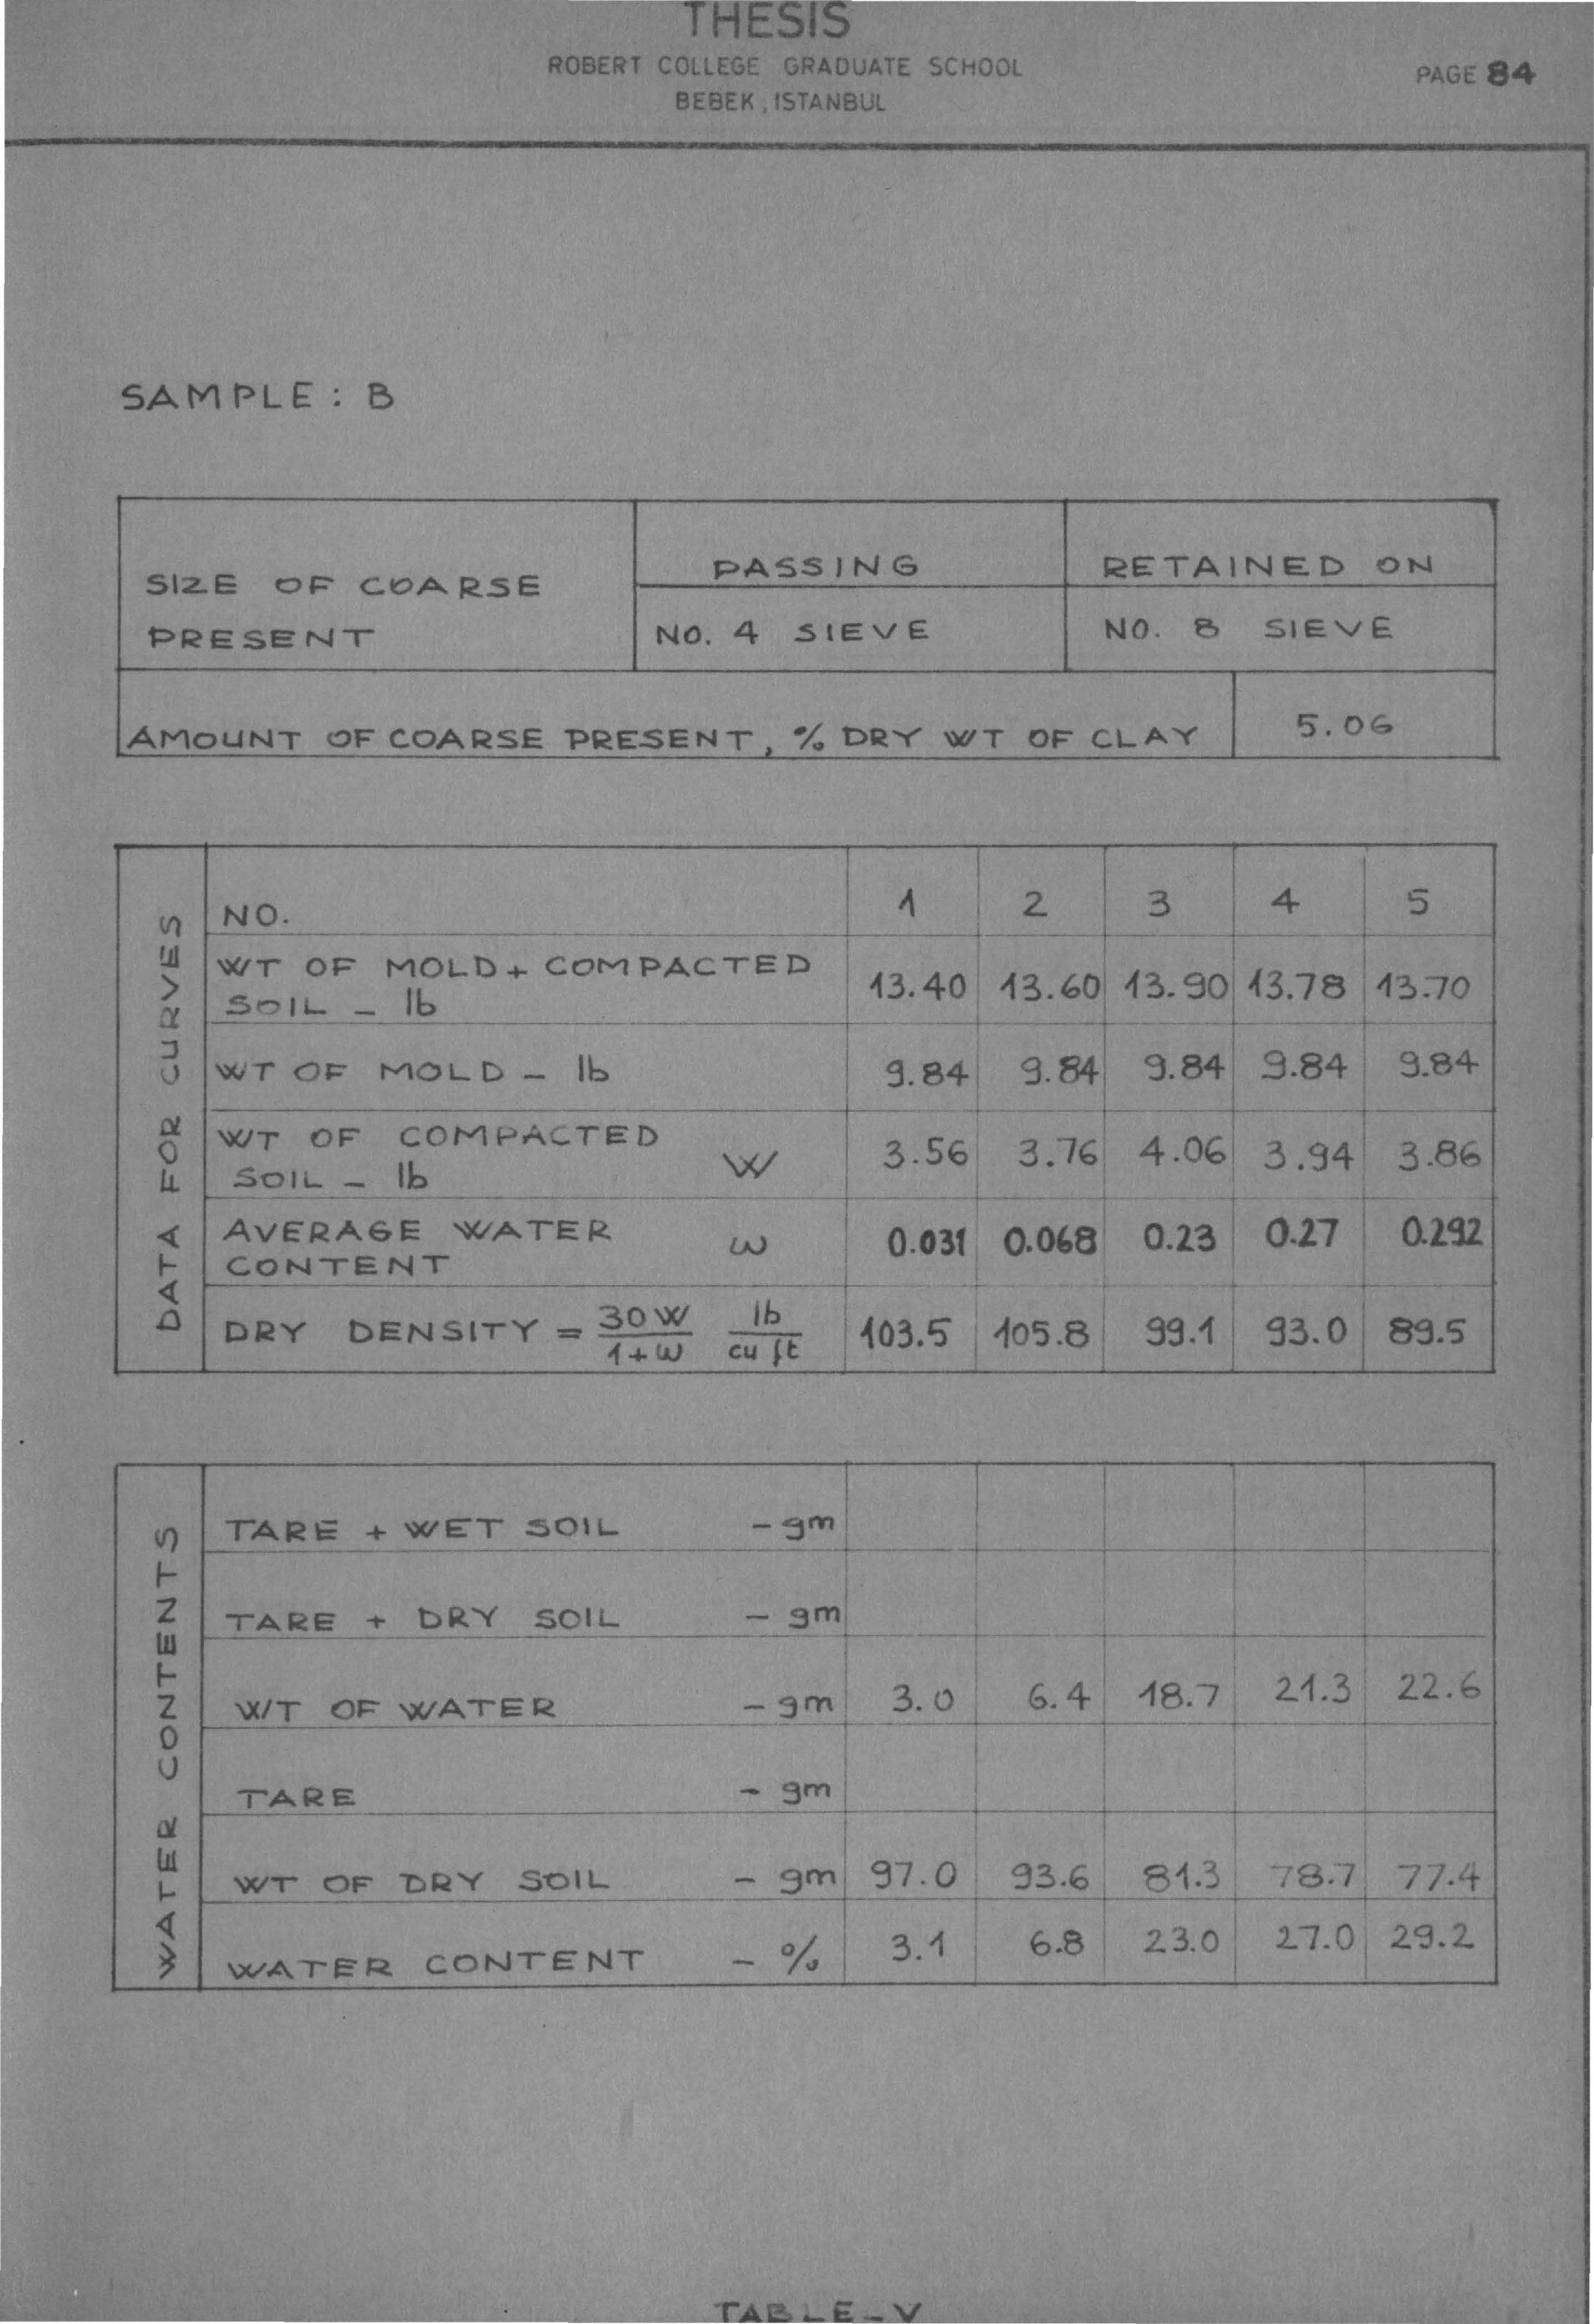 THESIS
ROBERT COLLEGE GRADUATE SCHOOL
PAGE 84
BEBEK, ISTANBUL
SAMPLE : B
SIZE OF COARSE PRESENT
PASSING
RETAINED ON
NO. 4 SIEVE
NO. 8 SIEVE
AMOUNT OF COARSE PRESENT, % DRY WT OF CLAY 5.06
DATA FOR CURVES
NO. 1 2 3 4 5
WT OF MOLD + COMPACTED
SOIL - lb 13.40 13.60 13.90 13.78 13.70
WT OF MOLD - lb 9.84 9.84 9.84 9.84 9.84
WT OF COMPACTED
SOIL - lb W 3.56 3.76 4.06 3.94 3.86
AVERAGE WATER
CONTENT ω 0.031 0.068 0.23 0.27 0.292
DRY DENSITY = 30W/1+ω lb/cu ft 103.5 105.8 99.1 93.0 89.5
WATER CONTENTS
TARE + WET SOIL - gm
TARE + DRY SOIL - gm
WT OF WATER - gm 3.0 6.4 18.7 21.3 22.6
TARE - gm
WT OF DRY SOIL - gm 97.0 93.6 81.3 78.7 77.4
WATER CONTENT - % 3.1 6.8 23.0 27.0 29.2
TABLE - V